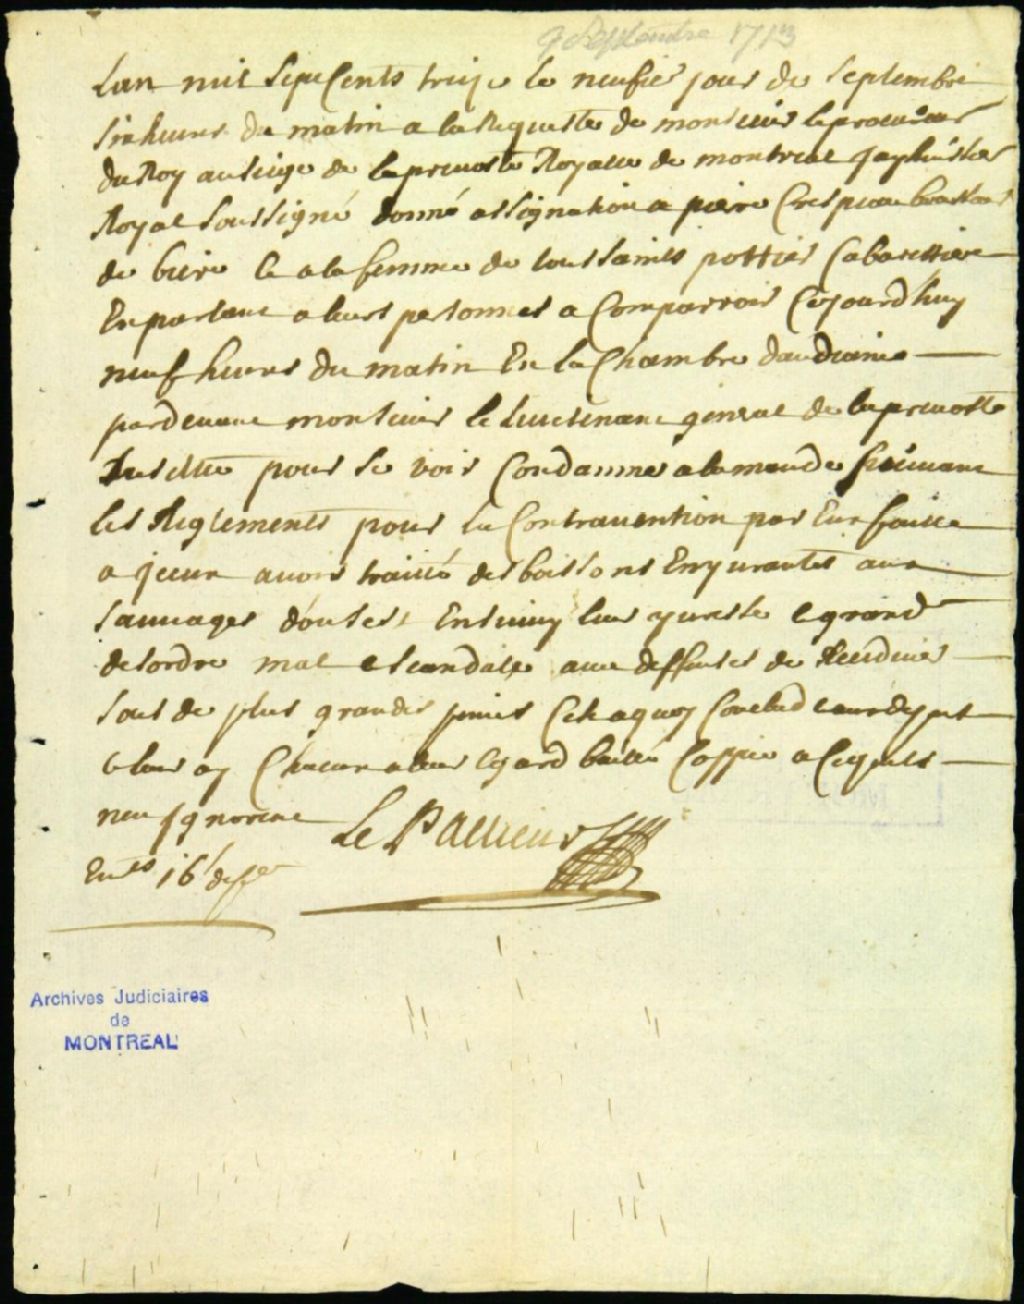 9 Septembre 1713
Lan mil Sept Cents treize le neufie jour de Septembre
Six heures du matin a la Requeste de monsieur le procureur
du Roy au siege de la prevosté Royalle de montreal Jay huissier
Royal soussigné donné assignation a piere Crespeau
de biere & a la femme de toussaints pottier Cabarettiere
En parlant a leurs personnes a Comparroir Cejourdhuy
neuf heures du matin En la Chambre daudiance
pardevant monsieur le Lieutenant general de la prevosté
pour se voir Condamner a lamende suivant
les Reglements pour la Contravention par Eux faitte
a avoir traitté des boissons Enyurantes aux
sauvages doutest Ensuivy leur yuresse & grand
desordre mal & scandale avec deffenses de Recidiver
sous de plus grandes peines & leur
& leur ay Chacun a leur Egard baillé Coppie a Cequils
nen Ignorent Le Pallieur
16
Archives Judiciaires
de
MONTREAL